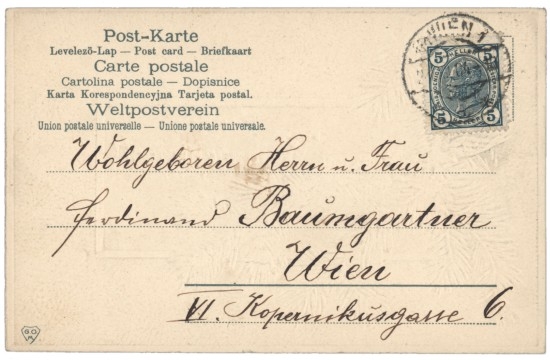 Post-Karte
Levelező-Lap — Post card — Briefkaart
Carte postale
Cartolina postale — Dopisnice
Karta Korespondencyjna Tarjeta postal.
Weltpostverein
Union postale universelle — Unione postale universale.
WIEN 1
5 5
5 5
Wohlgeboren Herrn u. Frau
Ferdinand Baumgartner
Wien
VI. Kopernikusgasse 6.